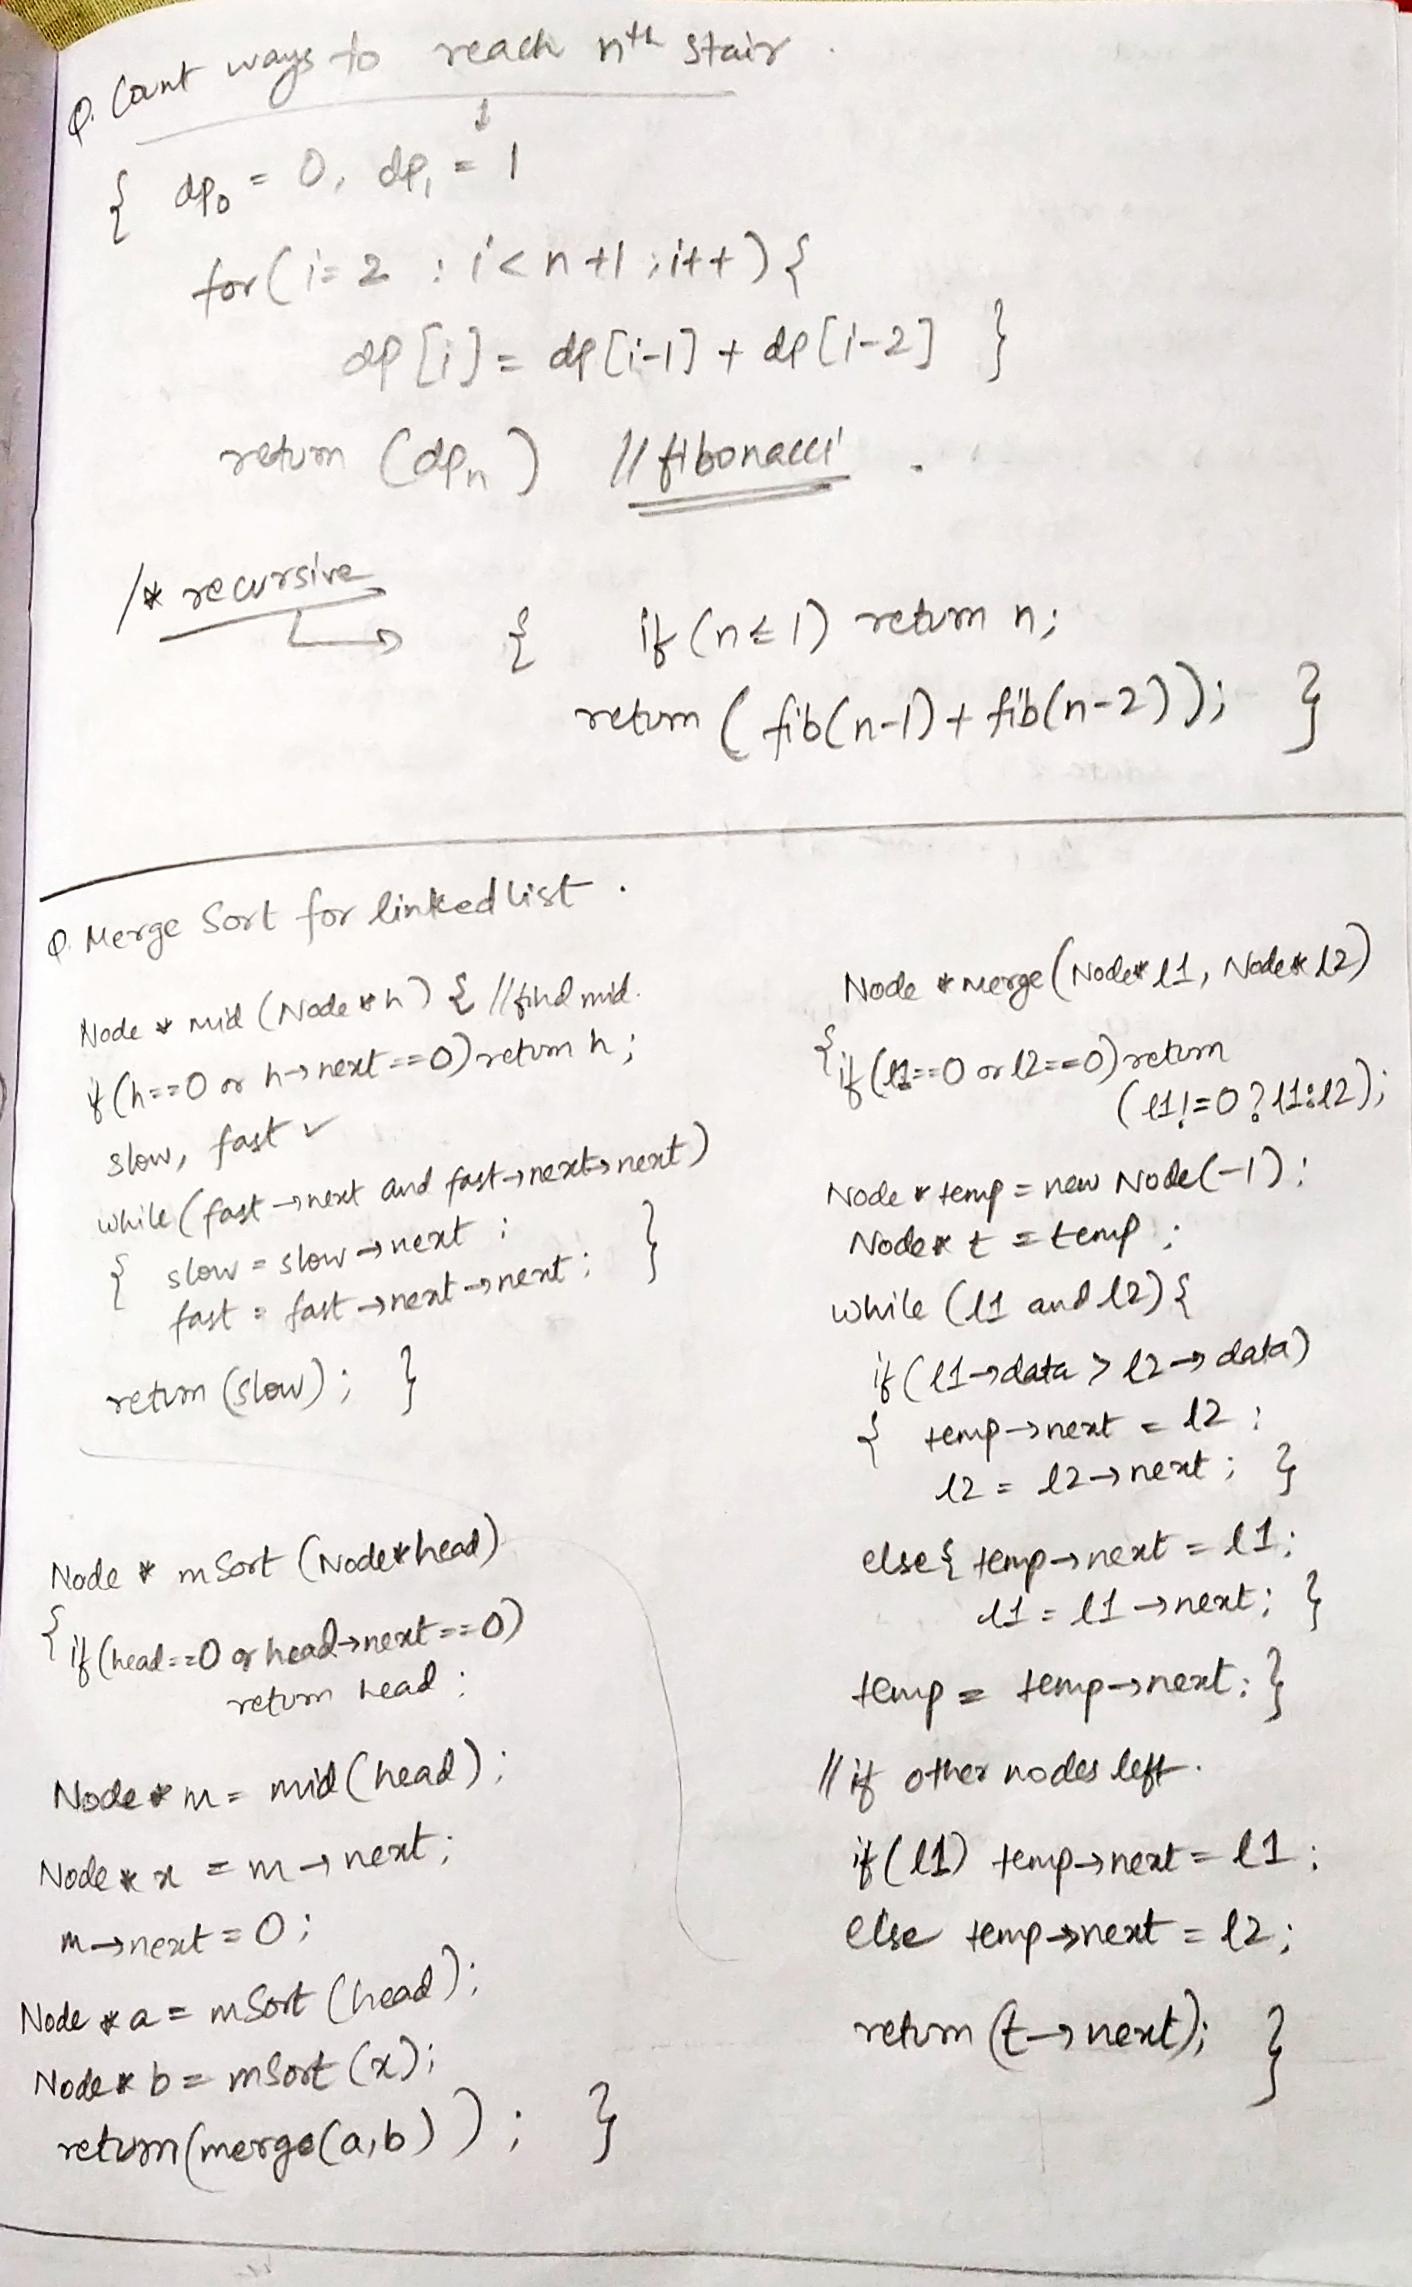 Q. Count ways to reach nth stair.
↓
{ dp0 = 0, dp1 = 1
for(i=2 ; i<n+1 ; i++){
dp[i] = dp[i-1] + dp[i-2] }
return (dpn) // fibonacci .
/* recursive
{ if (n≤1) return n;
return ( fib(n-1) + fib(n-2)); }
Q. Merge Sort for linked list .
Node * mid (Node *h) { // find mid.
if (h==0 or h→next==0) return h;
slow, fast ✓
while (fast→next and fast→next→next)
{ slow = slow→next ;
fast = fast→next→next ; }
return (slow) ; }
Node * mSort (Node* head)
{ if (head==0 or head→next==0)
return head ;
Node* m = mid (head) ;
Node* x = m→next ;
m→next = 0 ;
Node *a = mSort (head) ;
Node* b = mSort (x) ;
return (merge(a,b) ) ; }
Node *merge (Node* l1, Node* l2)
{ if (l1==0 or l2==0) return
(l1!=0 ? l1:l2);
Node * temp = new Node(-1);
Node* t = temp ;
while (l1 and l2) {
if (l1→data > l2→data)
{ temp→next = l2 ;
l2 = l2→next ; }
else { temp→next = l1;
l1 = l1→next ; }
temp = temp→next ; }
// if other nodes left.
if (l1) temp→next = l1 ;
else temp→next = l2 ;
return (t→next) ; }